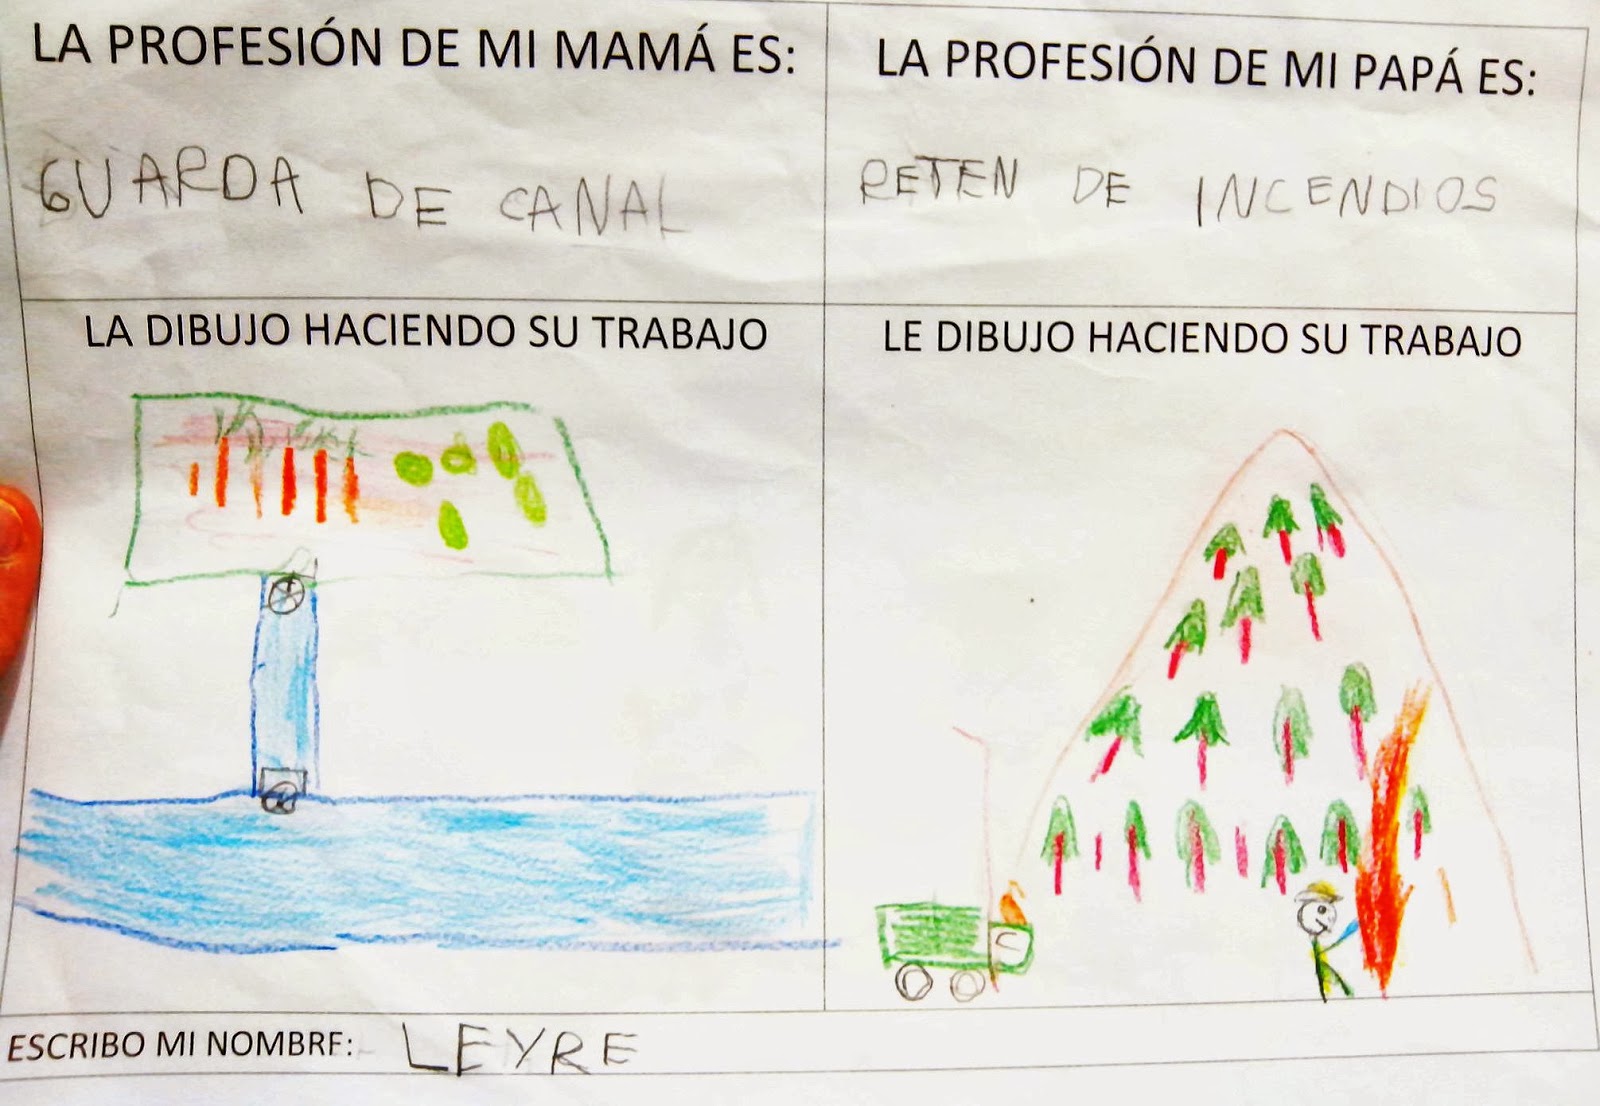 LA PROFESIÓN DE MI MAMÁ ES:
GUARDA DE CANAL
LA PROFESIÓN DE MI PAPÁ ES:
RETEN DE INCENDIOS
LA DIBUJO HACIENDO SU TRABAJO
LE DIBUJO HACIENDO SU TRABAJO
ESCRIBO MI NOMBRE: LEYRE